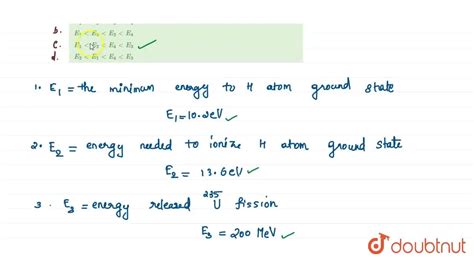 b. E₁ < E₂ < E₃ < E₄
c. E₁ < E₂ < E₄ < E₃ ✓
d. E₂ < E₁ < E₄ < E₃
1. E₁ = the minimum energy to H atom ground state
E₁ = 10.2eV ✓
2. E₂ = energy needed to ionize H atom ground state
E₂ = 13.6eV ✓
3. E₃ = energy released ²³⁵U fission
E₃ = 200 MeV ✓
doubtnut